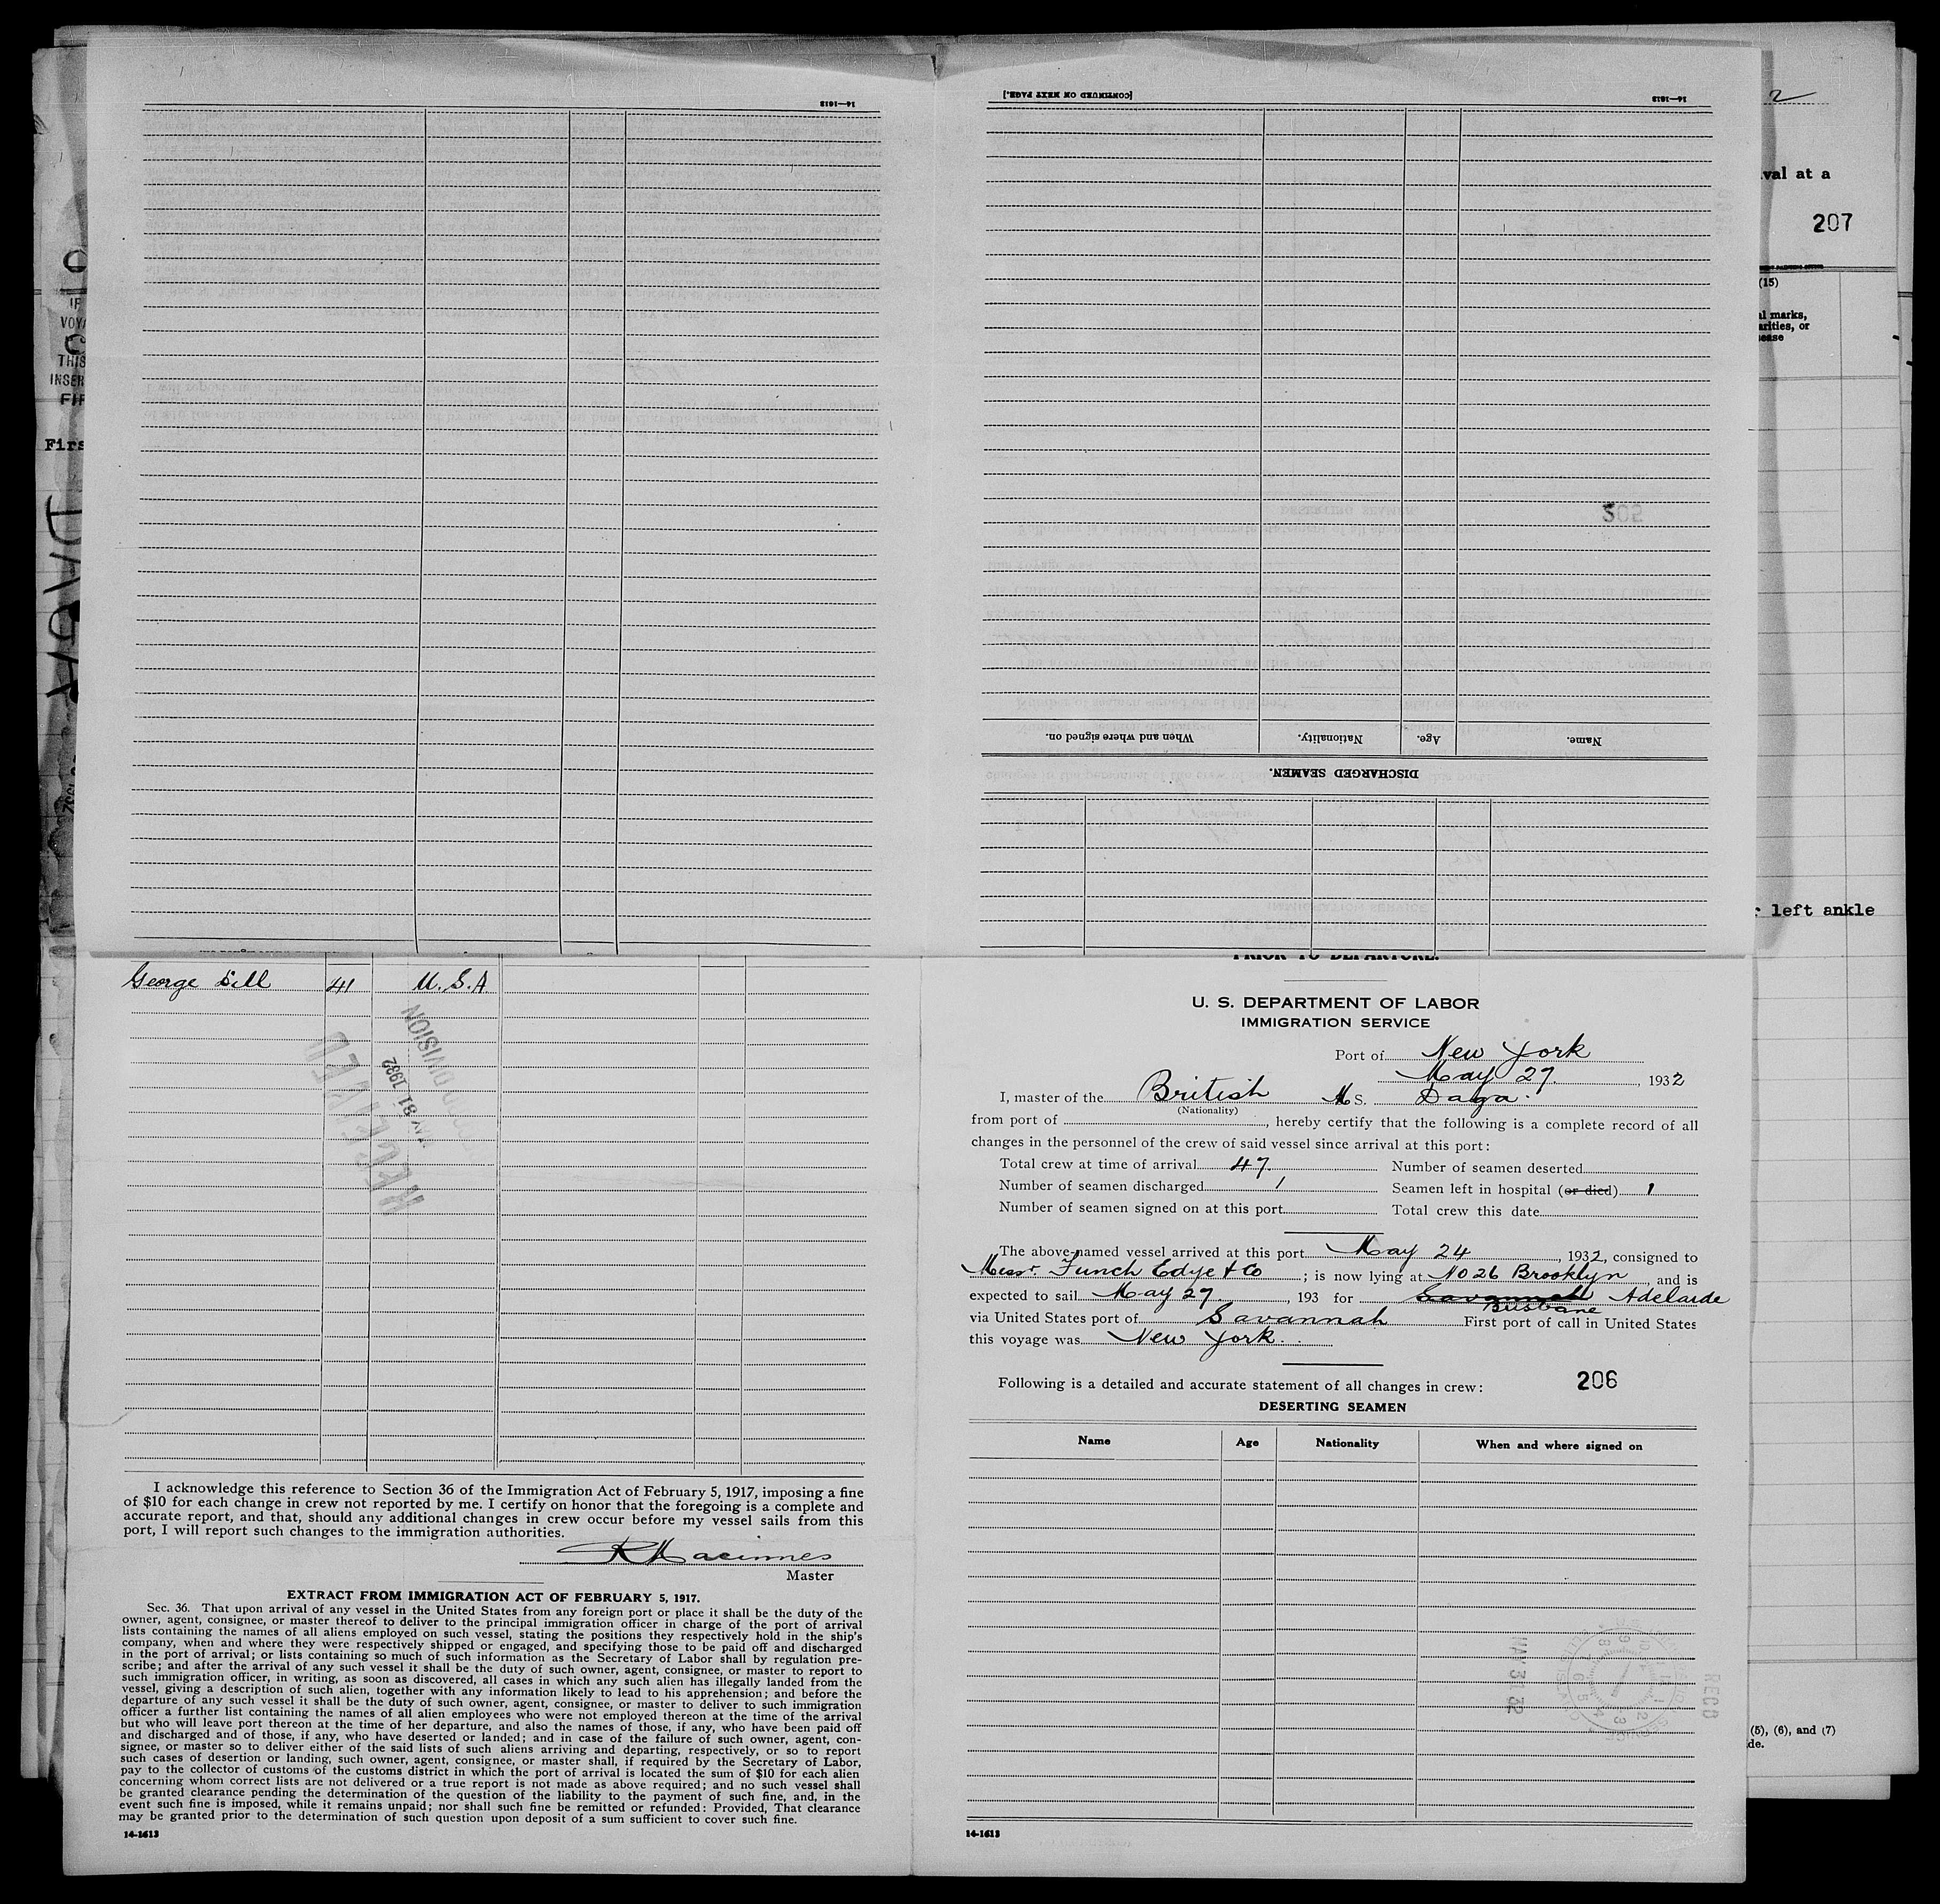 14—1613
[CONTINUED ON NEXT PAGE.]
14—1613
2
val at a
207
(15)
al marks,
arities, or
ease
IF
VOYA
THIS
INSER
FIR
Firs
When and where signed on.
Nationality.
Age.
Name.
DISCHARGED SEAMEN.
r left ankle
George Dill 41 U.S.A
RECEIVED
MAY 31 1932
DIVISION
I acknowledge this reference to Section 36 of the Immigration Act of February 5, 1917, imposing a fine
of $10 for each change in crew not reported by me. I certify on honor that the foregoing is a complete and
accurate report, and that, should any additional changes in crew occur before my vessel sails from this
port, I will report such changes to the immigration authorities.
R Macinnes
Master
EXTRACT FROM IMMIGRATION ACT OF FEBRUARY 5, 1917.
Sec. 36. That upon arrival of any vessel in the United States from any foreign port or place it shall be the duty of the
owner, agent, consignee, or master thereof to deliver to the principal immigration officer in charge of the port of arrival
lists containing the names of all aliens employed on such vessel, stating the positions they respectively hold in the ship's
company, when and where they were respectively shipped or engaged, and specifying those to be paid off and discharged
in the port of arrival; or lists containing so much of such information as the Secretary of Labor shall by regulation pre-
scribe; and after the arrival of any such vessel it shall be the duty of such owner, agent, consignee, or master to report to
such immigration officer, in writing, as soon as discovered, all cases in which any such alien has illegally landed from the
vessel, giving a description of such alien, together with any information likely to lead to his apprehension; and before the
departure of any such vessel it shall be the duty of such owner, agent, consignee, or master to deliver to such immigration
officer a further list containing the names of all alien employees who were not employed thereon at the time of the arrival
but who will leave port thereon at the time of her departure, and also the names of those, if any, who have been paid off
and discharged and of those, if any, who have deserted or landed; and in case of the failure of such owner, agent, con-
signee, or master so to deliver either of the said lists of such aliens arriving and departing, respectively, or so to report
such cases of desertion or landing, such owner, agent, consignee, or master shall, if required by the Secretary of Labor,
pay to the collector of customs of the customs district in which the port of arrival is located the sum of $10 for each alien
concerning whom correct lists are not delivered or a true report is not made as above required; and no such vessel shall
be granted clearance pending the determination of the question of the liability to the payment of such fine, and, in the
event such fine is imposed, while it remains unpaid; nor shall such fine be remitted or refunded: Provided, That clearance
may be granted prior to the determination of such question upon deposit of a sum sufficient to cover such fine.
14-1613
PRIOR TO DEPARTURE.
U. S. DEPARTMENT OF LABOR
IMMIGRATION SERVICE
Port of New York
May 27, 1932
I, master of the British M S. Daga.
(Nationality)
from port of , hereby certify that the following is a complete record of all
changes in the personnel of the crew of said vessel since arrival at this port:
Total crew at time of arrival 47 Number of seamen deserted
Number of seamen discharged 1 Seamen left in hospital (or died) 1
Number of seamen signed on at this port Total crew this date
The above-named vessel arrived at this port May 24, 1932, consigned to
Messr. Funch Edye & Co ; is now lying at No 26 Brooklyn, and is
expected to sail May 27, 193 for Savannah Adelaide
Brisbane
via United States port of Savannah First port of call in United States
this voyage was New York.
Following is a detailed and accurate statement of all changes in crew:
206
DESERTING SEAMEN
Name Age Nationality When and where signed on
MAY 31 32
RECD
14-1613
(5), (6), and (7)
de.